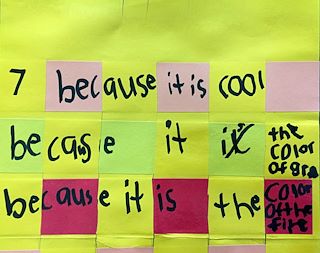 7 because it is cool
because it the
color
of gra
because it is the color
of the
fire